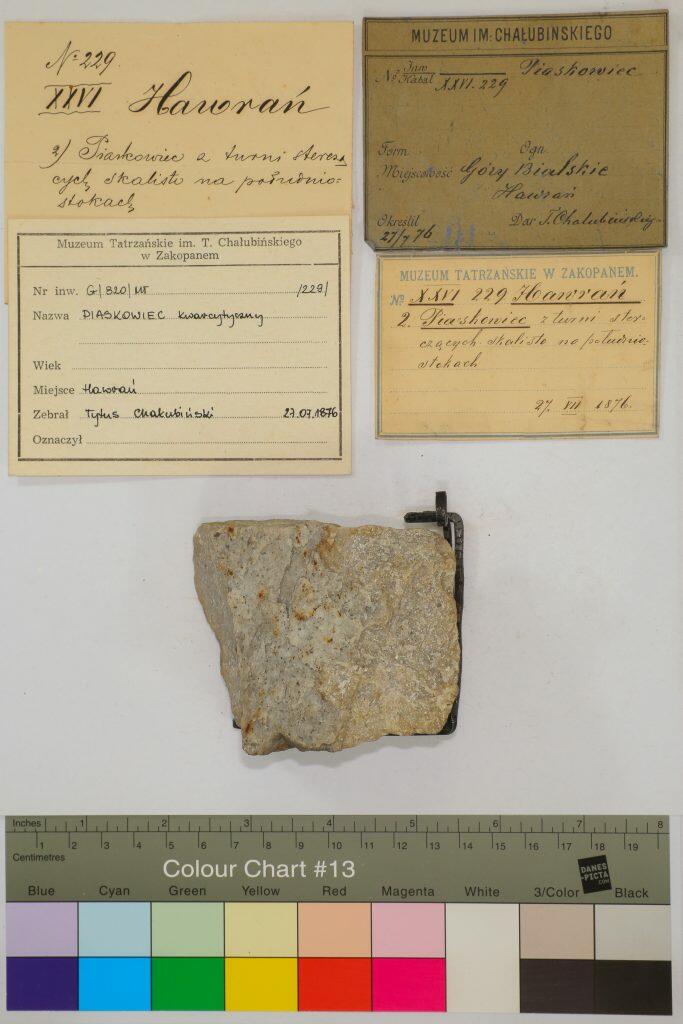 No 229.
XXVI Hawrań
2) Piaskowiec z turni stercza
cych skalisto na południo-
stokach
MUZEUM IM. CHAŁUBIŃSKIEGO
No Inw Katal XXVI. 229 Piaskowiec
Form. Ogn.
Miejscowość Góry Bialskie
Hawrań
Określił Dar T. Chałubińskiego
27/7 76
Muzeum Tatrzańskie im. T. Chałubińskiego
w Zakopanem
Nr inw. G/820/MT /229/
Nazwa PIASKOWIEC kwarcytyczny
Wiek
Miejsce Hawrań
Zebrał Tytus Chałubiński 27.07.1876
Oznaczył
MUZEUM TATRZAŃSKIE W ZAKOPANEM.
No XXVI 229 Hawrań
2. Piaskowiec z turni ster-
czących skalisto na południo-
stokach
27. VII 1876.
Inches 1 2 3 4 5 6 7 8
1 2 3 4 5 6 7 8 9 10 11 12 13 14 15 16 17 18 19
Centimetres
Colour Chart #13
DANES
-PICTA
.COM
Blue Cyan Green Yellow Red Magenta White 3/Color Black